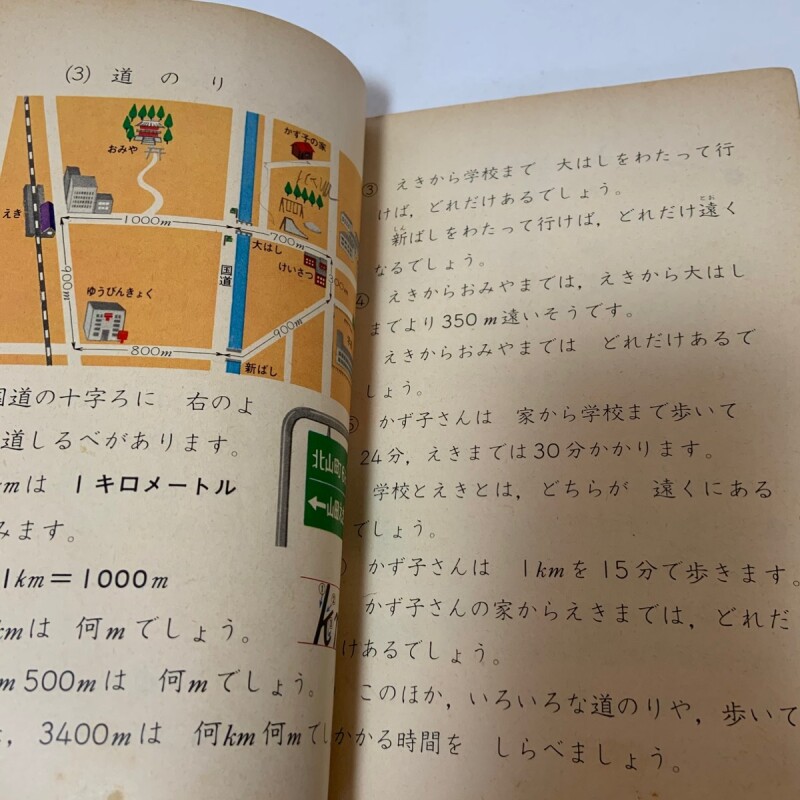 (3) 道のり
おみや
かず子の家
えき
1000m
700m
大はし
けいさつ
国道
900m
300m
ゆうびんきょく
900m
800m
新ばし
国道の十字ろに 右のよ
道しるべがあります。
kmは 1キロメートル
みます。
1km=1000m
kmは 何mでしょう。
m500mは 何mでしょう。
, 3400mは 何km何mで
北山
③ えきから学校まで 大はしをわたって行
けば, どれだけあるでしょう。
新ばしをわたって行けば, どれだけ遠く
しん
とお
なるでしょう。
④ えきからおみやまでは, えきから大はし
までより350m遠いそうです。
えきからおみやまでは どれだけあるで
しょう。
⑤ かず子さんは 家から学校まで歩いて
24分, えきまでは30分かかります。
学校とえきとは, どちらが 遠くにある
でしょう。
かず子さんは 1kmを15分で歩きます。
かず子さんの家からえきまでは, どれだ
けあるでしょう。
このほか, いろいろな道のりや, 歩いて
かかる時間を しらべましょう。